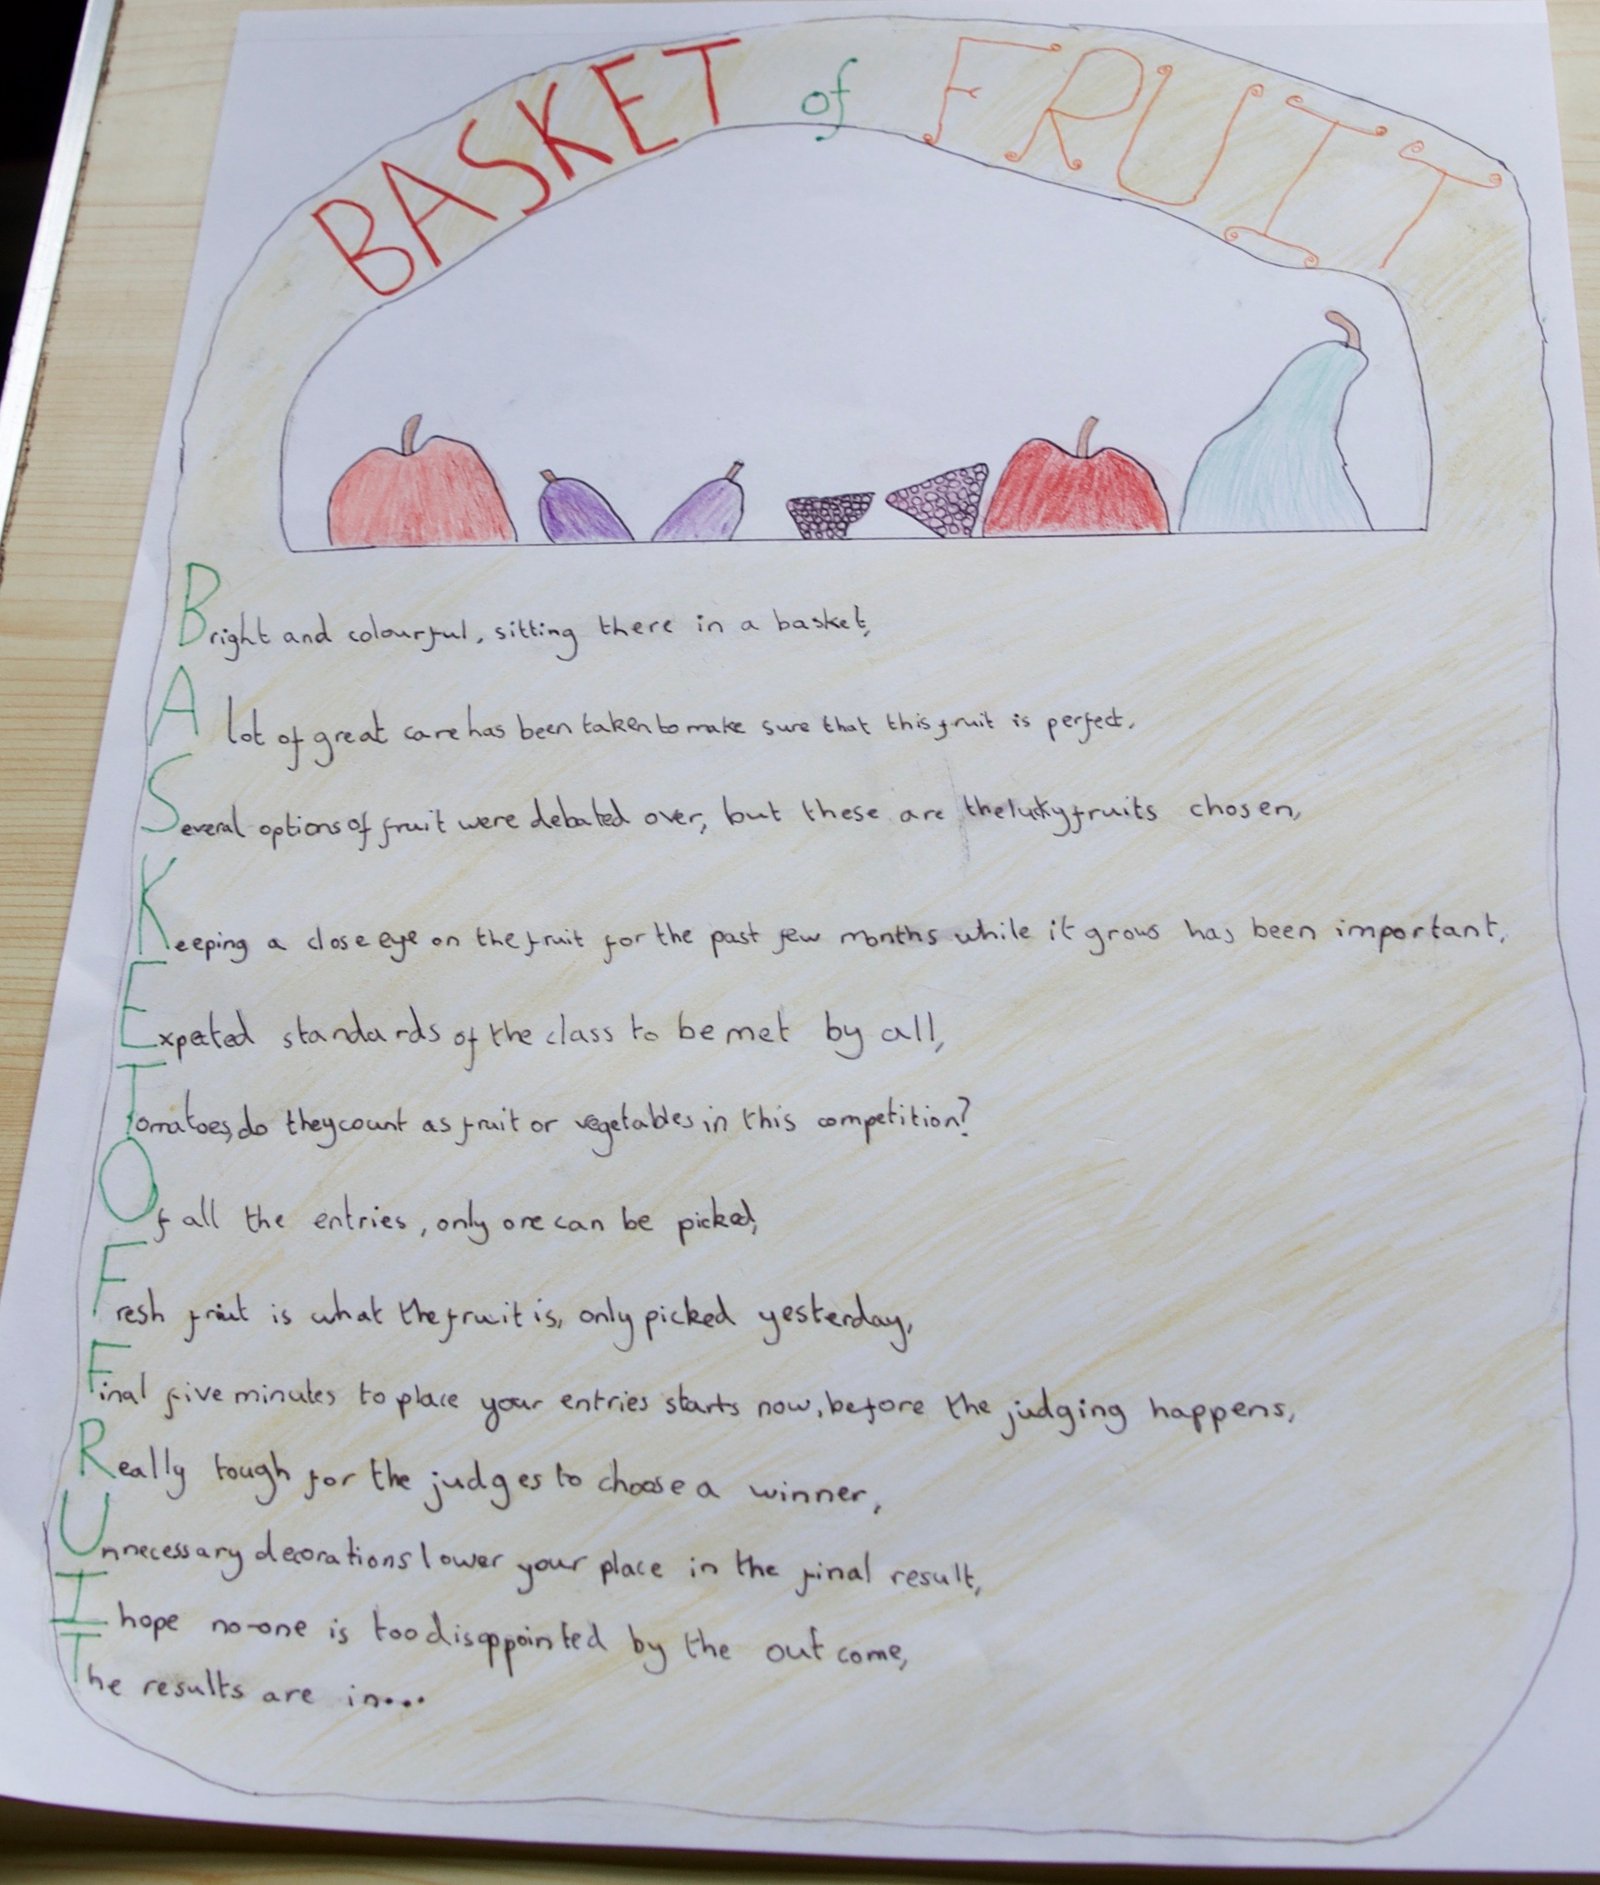 BASKET of FRUIT
Bright and colourful, sitting there in a basket,
A lot of great care has been taken to make sure that this fruit is perfect.
Several options of fruit were debated over, but these are the lucky fruits chosen,
Keeping a close eye on the fruit for the past few months while it grows has been important,
Expected standards of the class to be met by all,
Tomatoes, do they count as fruit or vegetables in this competition?
Of all the entries, only one can be picked,
Fresh fruit is what the fruit is, only picked yesterday,
Final five minutes to place your entries starts now, before the judging happens,
Really tough for the judges to choose a winner,
Unnecessary decorations lower your place in the final result,
I hope no-one is too disappointed by the outcome,
The results are in...